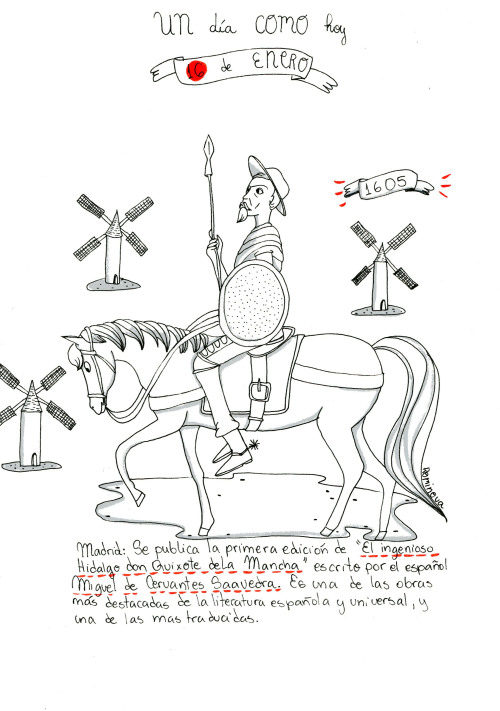 UN día COMO hoy
16 de ENERO
1605
Romineva
Madrid: Se publica la primera edición de "El ingenioso
Hidalgo don Quixote dela Mancha" escrito por el español
Miguel de Cervantes Saavedra. Es una de las obras
más destacadas de la literatura española y universal, y
una de las mas traducidas.